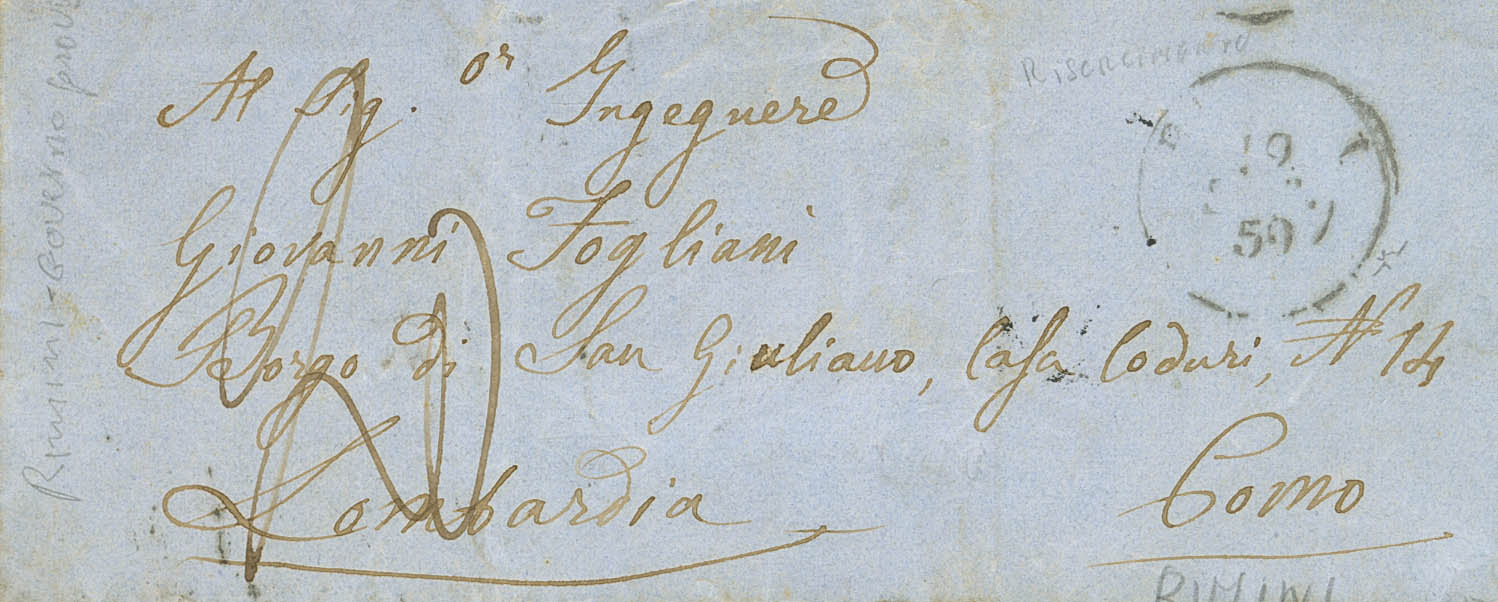 Al Sig.or Ingegnere
Giovanni Fogliani
Borgo di San Giuliano, Casa Coduri, No 14
Lombardia Como
Risorgimento
19
59
Rimini - Governo provv
RIMINI